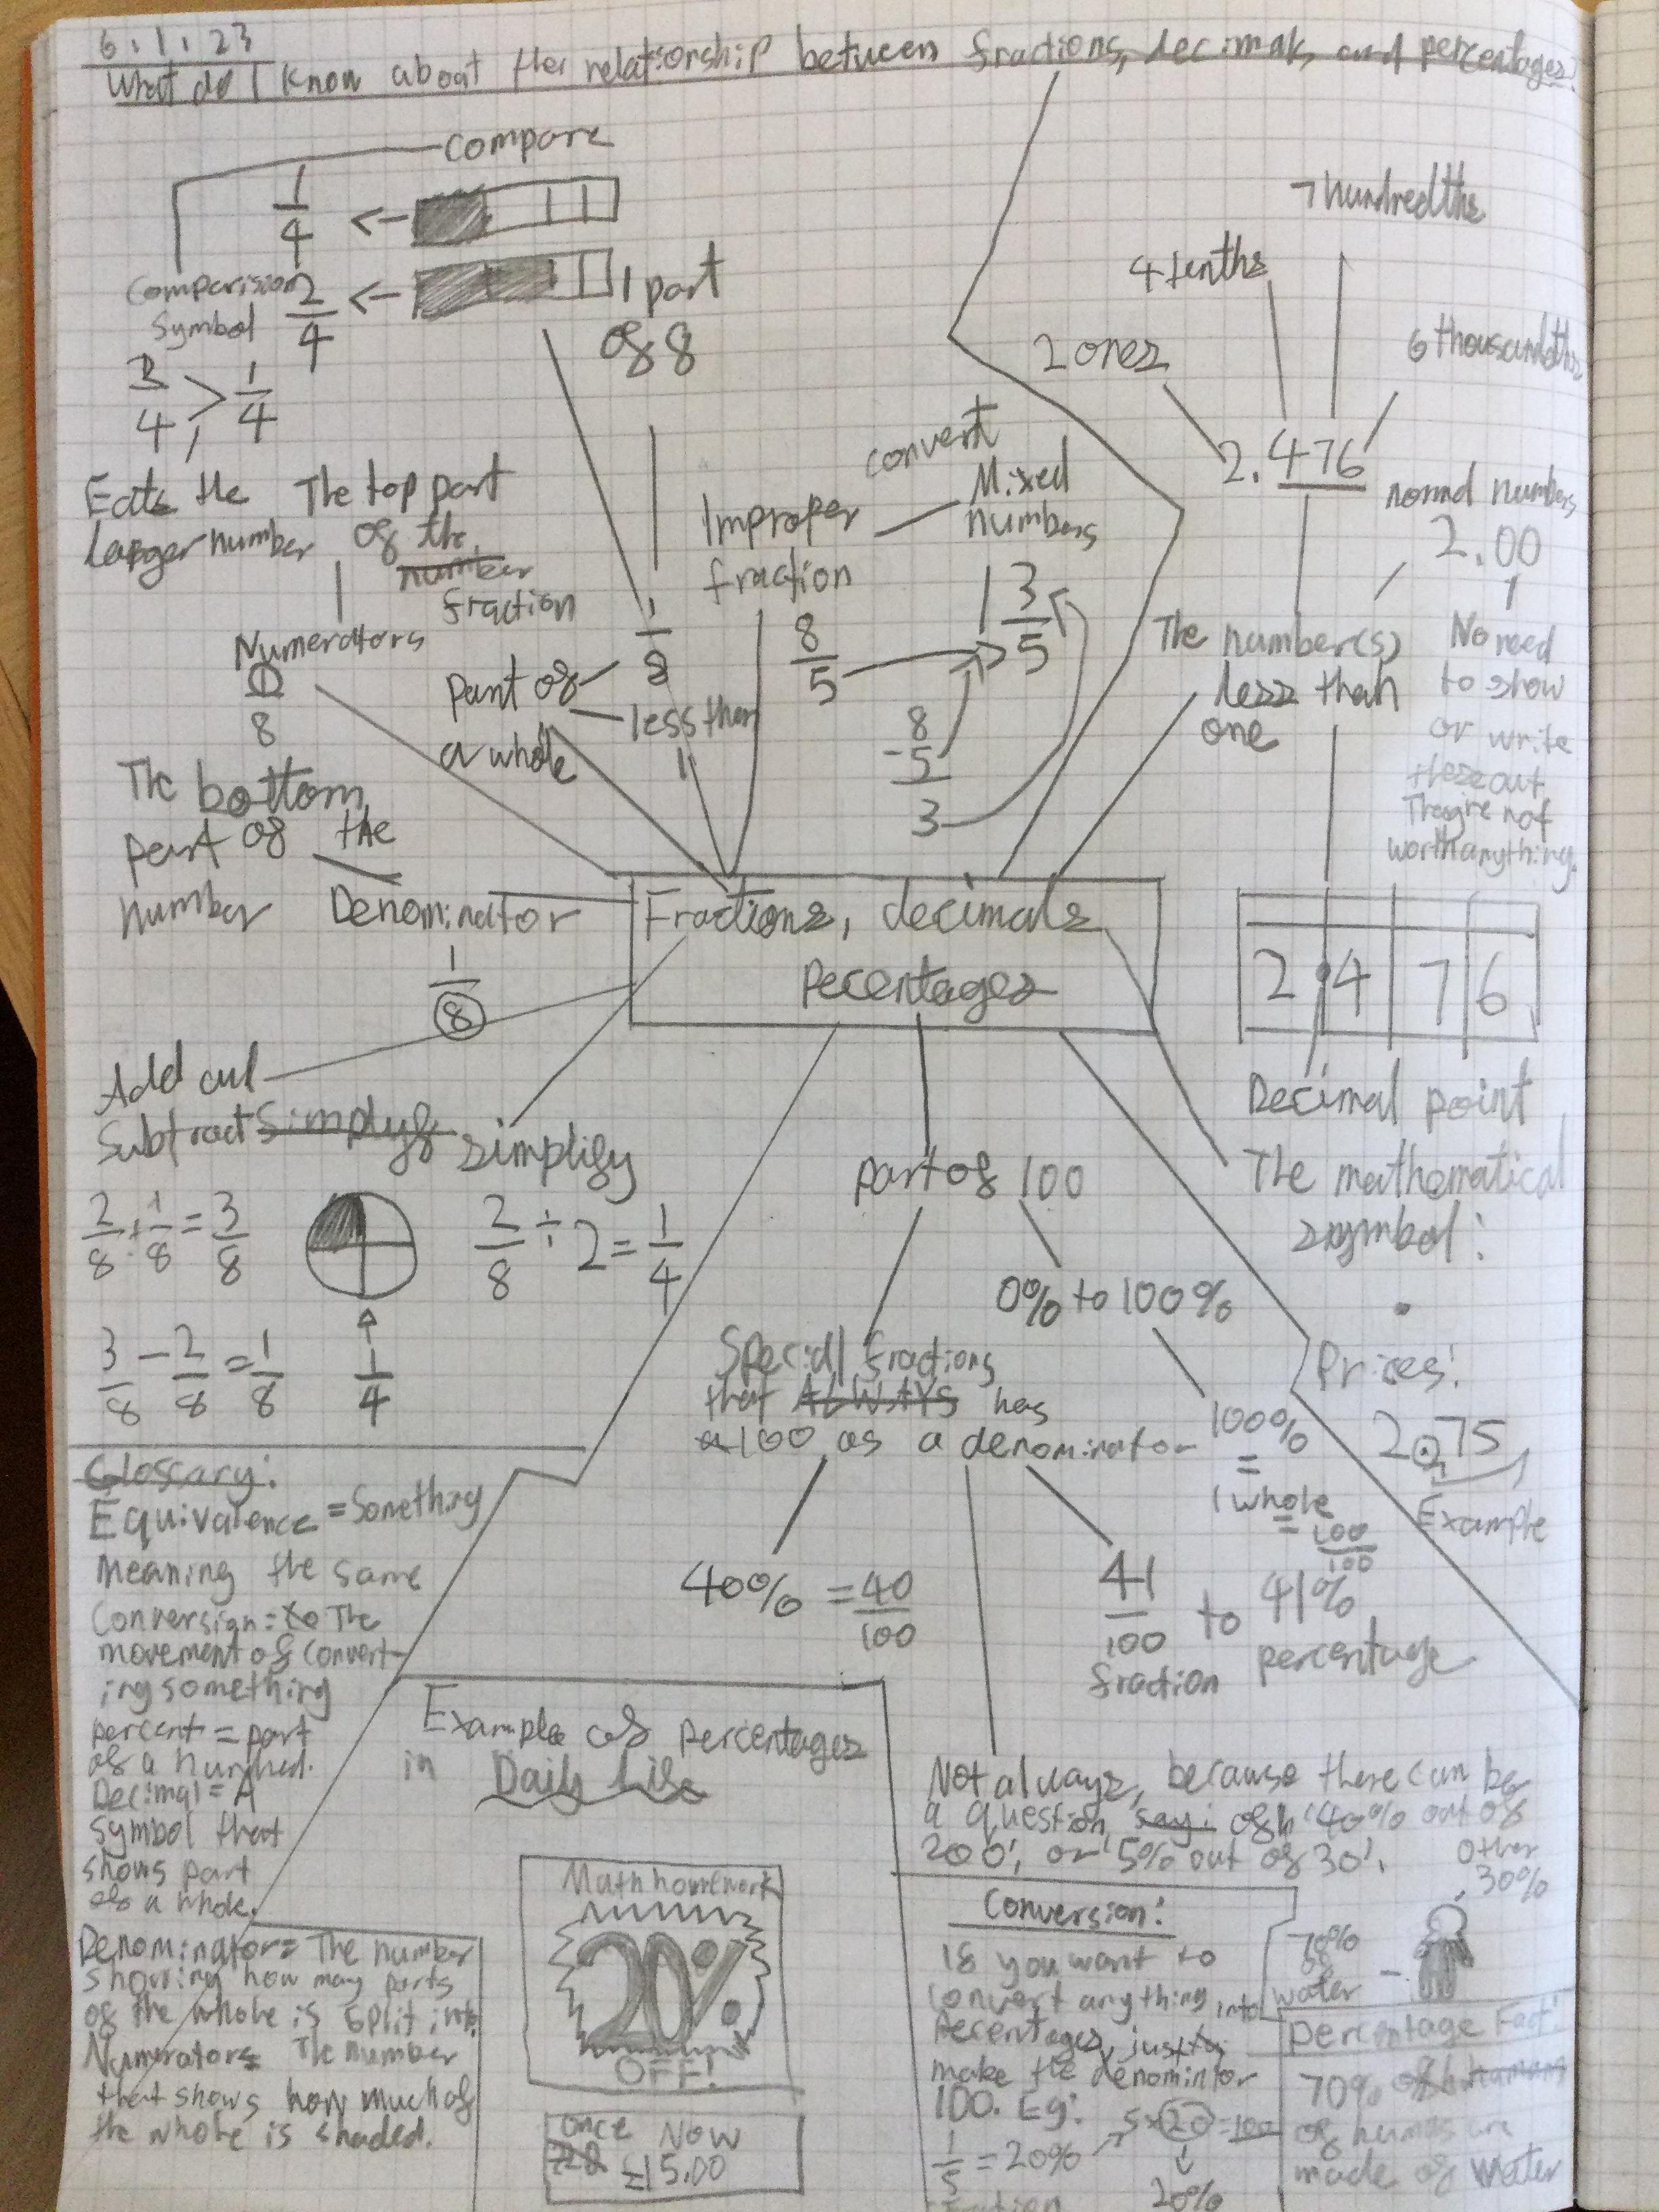 6.1.23
What do I know about the relationship between fractions, decimals, and percentages?
compare
1/4
Comparision
symbol
2/4
1 part
of 8
3/4 > 1/4
Eats the
larger number
The top part
of the
number
fraction
Numerators
1/8
The bottom
part of the
number
Denominator
1/8
Part of
a whole
1/8
less then
1
convert
Improper
fraction
Mixed
numbers
8/5
1 3/5
8
- 5
3
7 hundredths
4 tenths
2 ones
6 thousandths
2.476
normal numbers
2.00
The number(s)
less than
one
No need
to show
or write
these out.
They're not
worth anything.
2.476
Decimal point
The mathematical
symbol:
.
Prices:
2.75
Example
Fractions, decimals
Pecentages
Add and
Subtract
simplyf
simplify
2/8 + 1/8 = 3/8
3/8 - 2/8 = 1/8
1/4
2/8 ÷ 2 = 1/4
part of 100
0% to 100%
100%
=
1 whole
= 100/100
Speciall fractions
that ALWAYS has
a 100 as a denominator
40% = 40/100
41/100 to 41%
fraction
percentage
Not always, because there can be
a question, say: of '40% out of
200', or '5% out of 30'.
Glossary:
Equivalence = Something
meaning the same
Conversion = to The
movement of convert-
ing something
percent = part
of a hundred.
Decimal = A
symbol that
shows part
of a whole.
Denominator = The number
showing how many parts
of the whole is split into.
Numerators = The number
that shows how much of
the whole is shaded.
Example of percentages
in Daily Life
Math homework
20%
OFF!
Once Now
£15.00
Conversion:
If you want to
convert anything into
Pecentages, just
make the denomintor
100. Eg:
1/5 = 20%
5 x 20 = 100
20%
Other
30%
70%
of
water
Percentage Fact:
70% of humans
of humans are
made of water